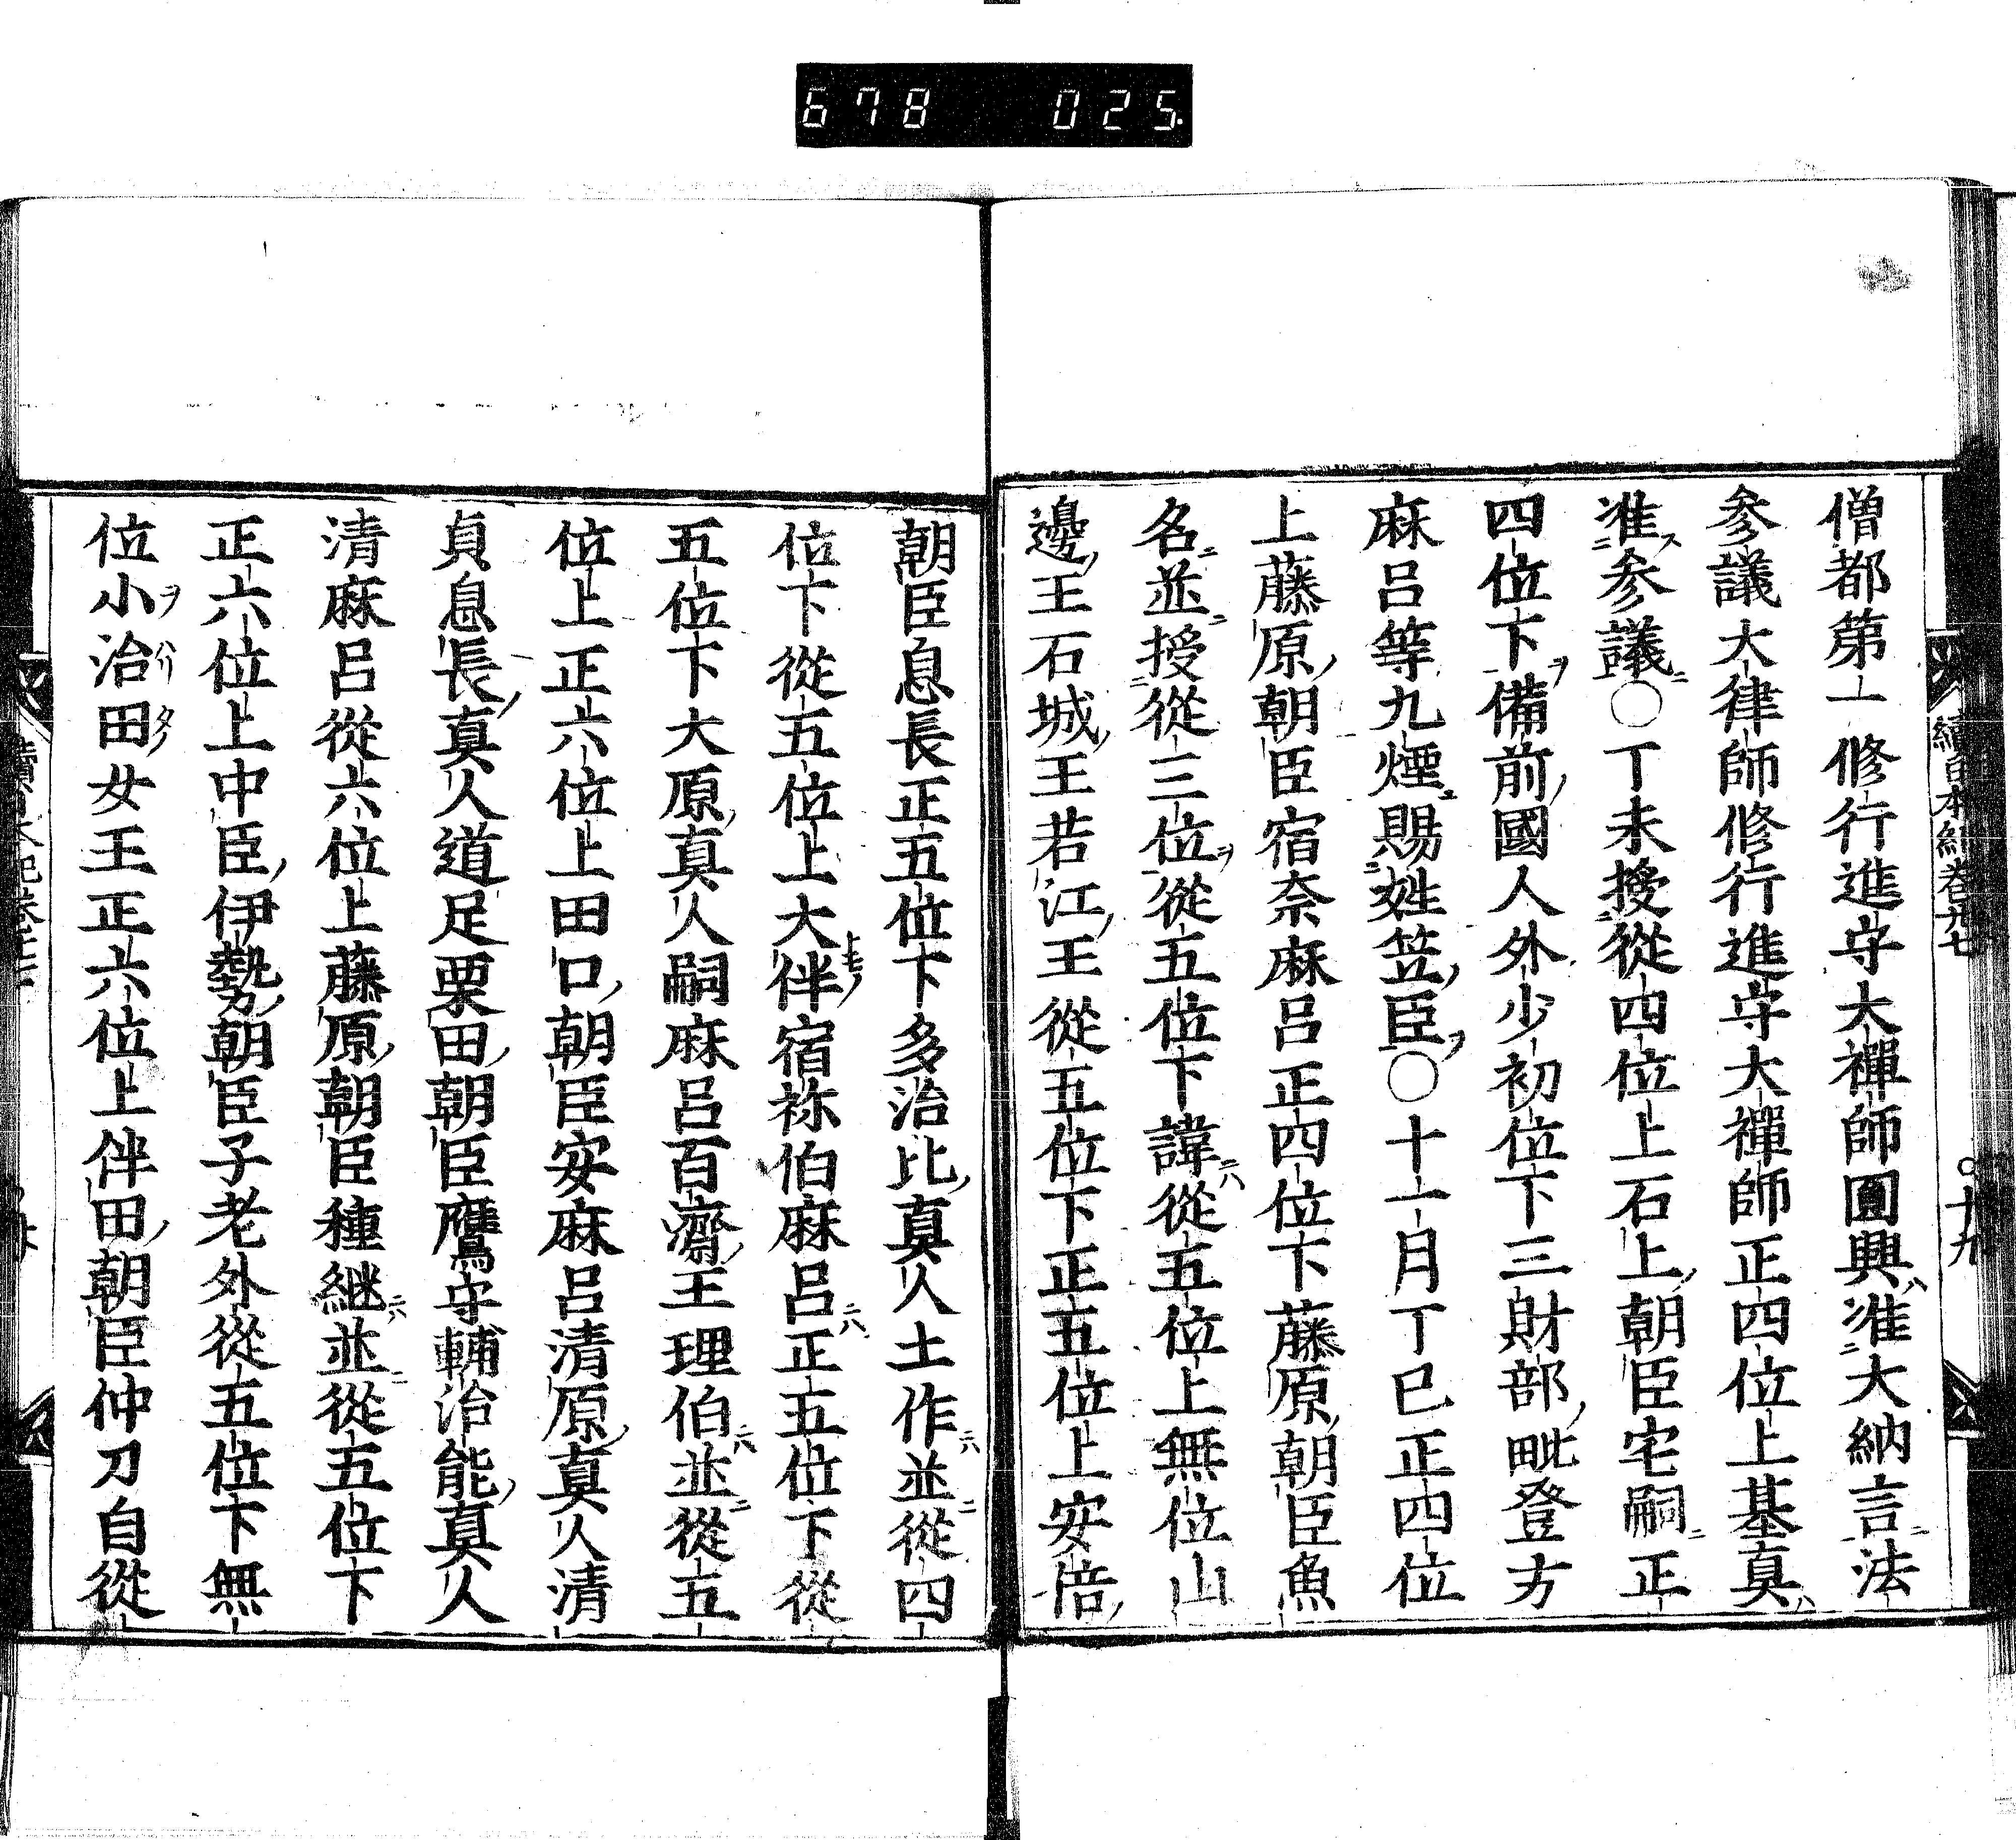 678 025
僧都第一修行進守大禪師圓興准大納言法
参議大律師修行進守大禪師正四位上基真
准参議○丁未授從四位上石上朝臣宅嗣正
四位下備前國人外少初位下三財部毗登方
麻呂等九煙賜姓笠臣○十一月丁巳正四位
上藤原朝臣宿奈麻呂正四位下藤原朝臣魚
名並授從三位從五位下諱從五位上無位山
邊王石城王若江王從五位下正五位上安倍
朝臣息長正五位下多治比真人土作並從四
位下從五位上大伴宿祢伯麻呂正五位下從
五位下大原真人嗣麻呂百濟王理伯並從五
位上正六位上田口朝臣安麻呂清原真人清
貞息長真人道足粟田朝臣鷹守輔治能真人
清麻呂從六位上藤原朝臣種継並從五位下
正六位上中臣伊勢朝臣子老外從五位下無
位小治田女王正六位上伴田朝臣仲刀自從